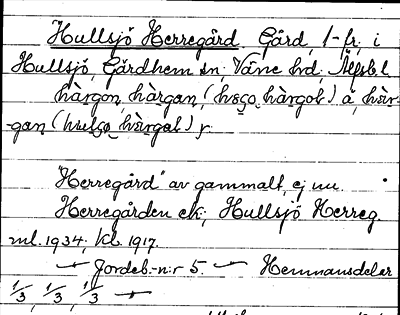 Hullsjö Herregård. Gård, 1 fr, i
Hullsjö, Gärdhem sn, Väne hd, Älfsb. l.
hàrgon, hàrgan, (hɷgo hàrgol) å, hàr-
gan (hulgo hàrgol) y
"Herregård" av gammalt, ej nu.
Herregården ek; Hullsjö Herreg.
ml. 1934, kb 1917.
Jordeb.-n:r 5. Hemmansdelar
1/3, 1/3, 1/3